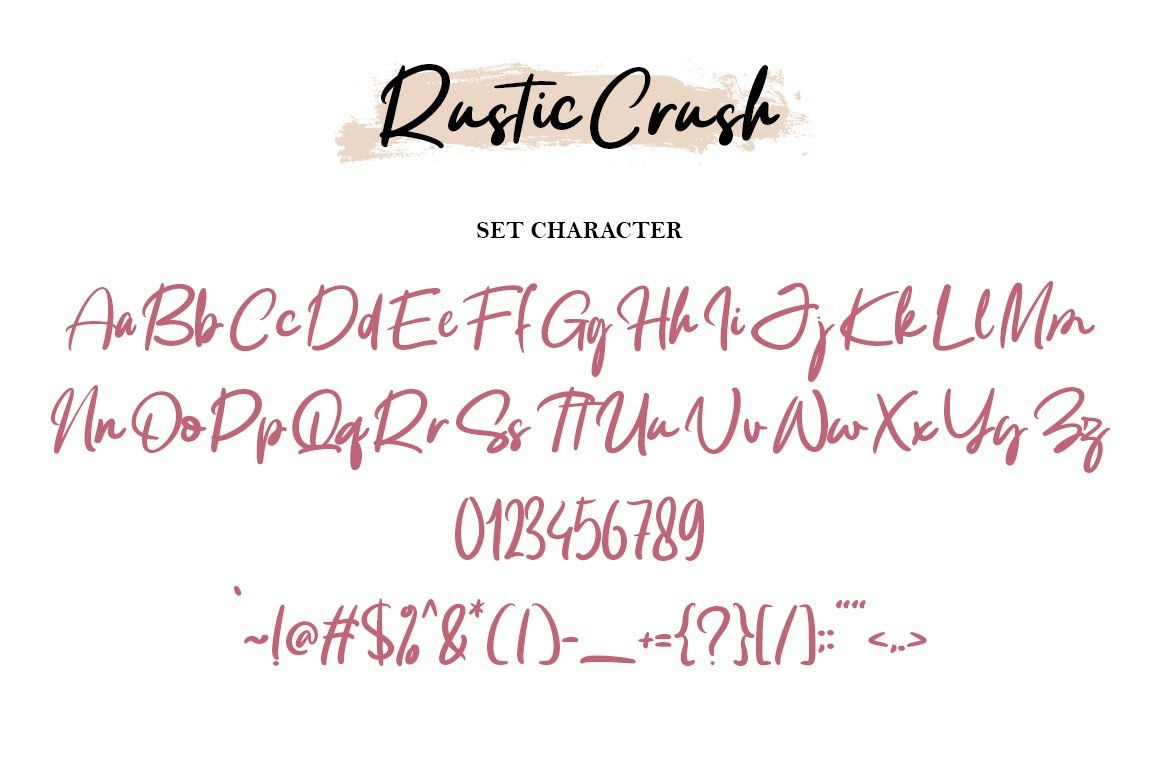 Rustic Crush
SET CHARACTER
Aa Bb Cc Dd Ee Ff Gg Hh Ii Jj Kk Ll Mm
Nn Oo Pp Qq Rr Ss Tt Uu Vv Ww Xx Yy Zz
0123456789
`~!@#$%^&*(|)-_+={?}[/];:""<,.>